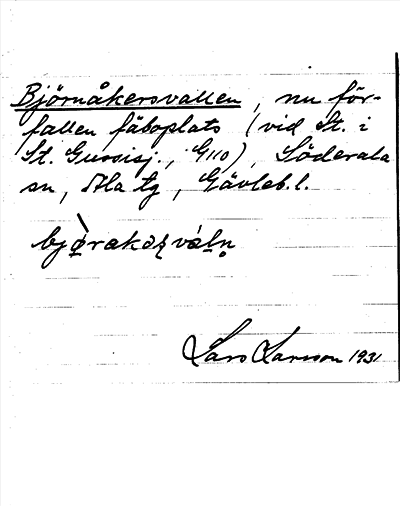 Björnåkersvallen, nu för-
fallen fäboplats (vid St. i
St. Gussisj., G110), Söderala
sn, Ala tg, Gävleb.l.
Lars Larsson 1931